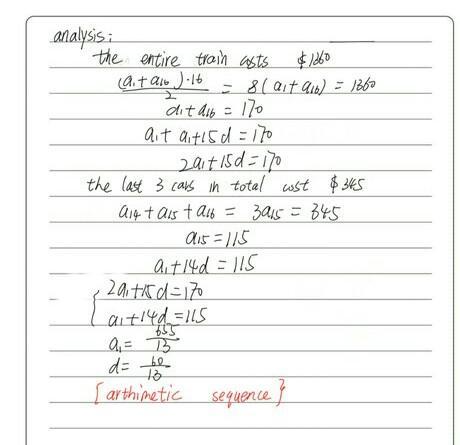 analysis:
the entire train costs $1360
(a₁+a₁₆)·16/2 = 8(a₁+a₁₆) = 1360
a₁+a₁₆ = 170
a₁+a₁+15d = 170
2a₁+15d = 170
the last 3 cars in total cost $345
a₁₄+a₁₅+a₁₆ = 3a₁₅ = 345
a₁₅ = 115
a₁+14d = 115
{2a₁+15d = 170
a₁+14d = 115
a₁ = 655/13
d = 60/13
{arthimetic sequence}